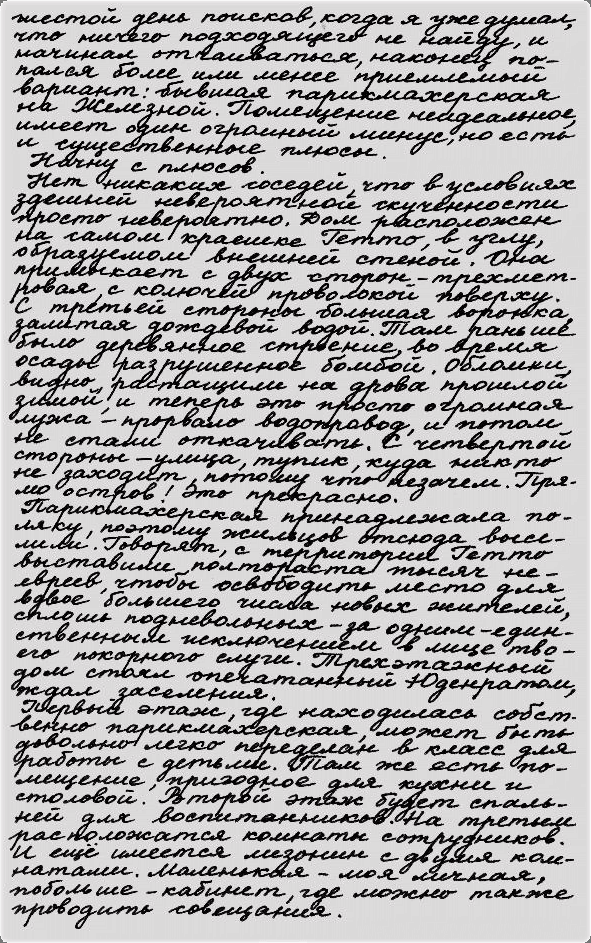 жестой день поисков, когда я уже думал,
что ничего подходящего не найду, и
начинал отчаиваться, наконец по-
пался более или менее приемлемый
вариант: бывшая парикмахерская
на Железной. Помещение неидеальное,
имеет один огромный минус, но есть
и существенные плюсы.
Начну с плюсов.
Нет никаких соседей, что в условиях
здешней невероятной скученности
просто невероятно. Дом расположен
на самом краешке Гетто, в углу,
образуемом внешней стеной. Она
примыкает с двух сторон – трехмет-
ровая, с колючей проволокой поверху.
С третьей стороны большая воронка,
залитая дождевой водой. Там раньше
было деревянное строение, во время
осады разрушенное бомбой. Обломки,
видно, растащили на дрова прошлой
зимой, и теперь это просто огромная
лужа – прорвало водопровод, и потом
не стали откачивать. С четвертой
стороны – улица, тупик, куда никто
не заходит, потому что незачем. Пря-
мо остров! Это прекрасно.
Парикмахерская принадлежала по-
ляку, поэтому жильцов отсюда высе-
лили. Говорят, с территории Гетто
выставили полтораста тысяч не-
евреев, чтобы освободить место для
вдвое большего числа новых жителей,
сплошь подневольных – за одним-един-
ственным исключением в лице тво-
его покорного слуги. Трехэтажный
дом стоял опечатанный Юденратом,
ждал заселения.
Первый этаж, где находилась собст-
венно парикмахерская, может быть
довольно легко переделан в класс для
работы с детьми. Там же есть по-
мещение, пригодное для кухни и
столовой. Второй этаж будет спаль-
ней для воспитанников. На третьем
расположатся комнаты сотрудников.
И ещё имеется мезонин с двумя ком-
натами. Маленькая – моя личная,
побольше – кабинет, где можно также
проводить совещания.